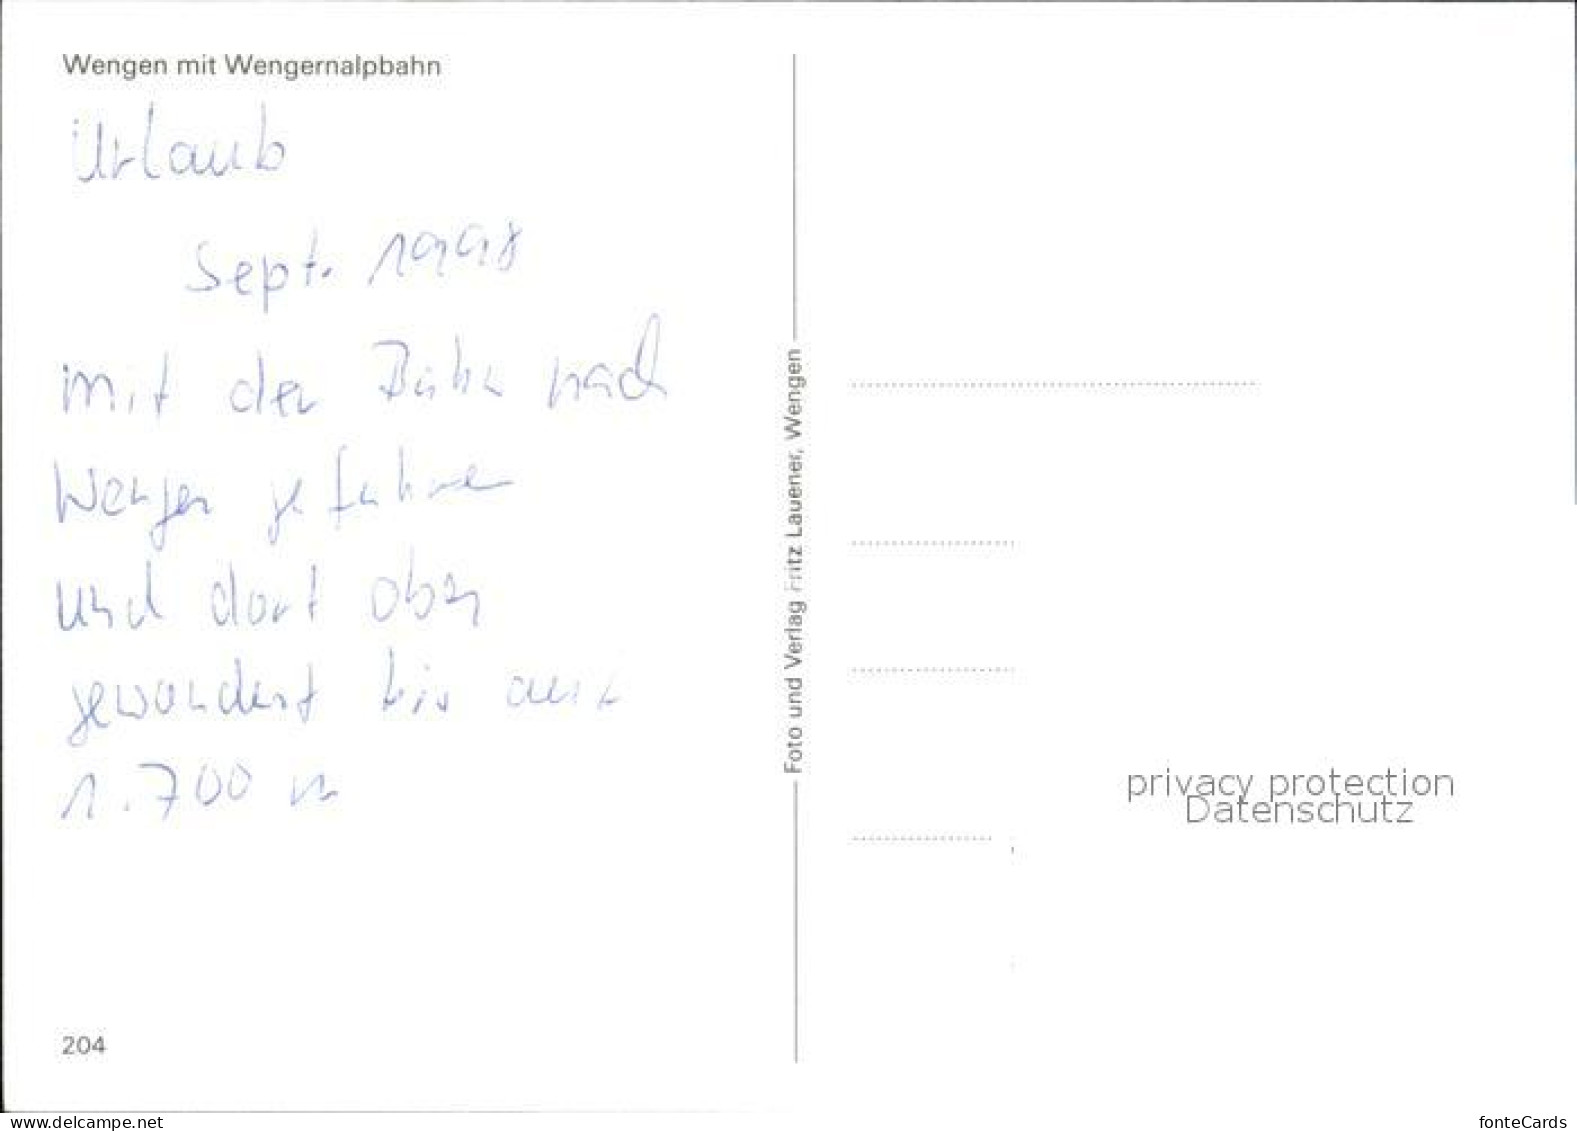 Wengen mit Wengernalpbahn
Urlaub
Sept. 1998
mit der Bahn nach
Wengen gefahren
und dort oben
gewandert bis auf
1.700 m
204
Foto und Verlag Fritz Lauener, Wengen
privacy protection
Datenschutz
www.delcampe.net
fonteCards